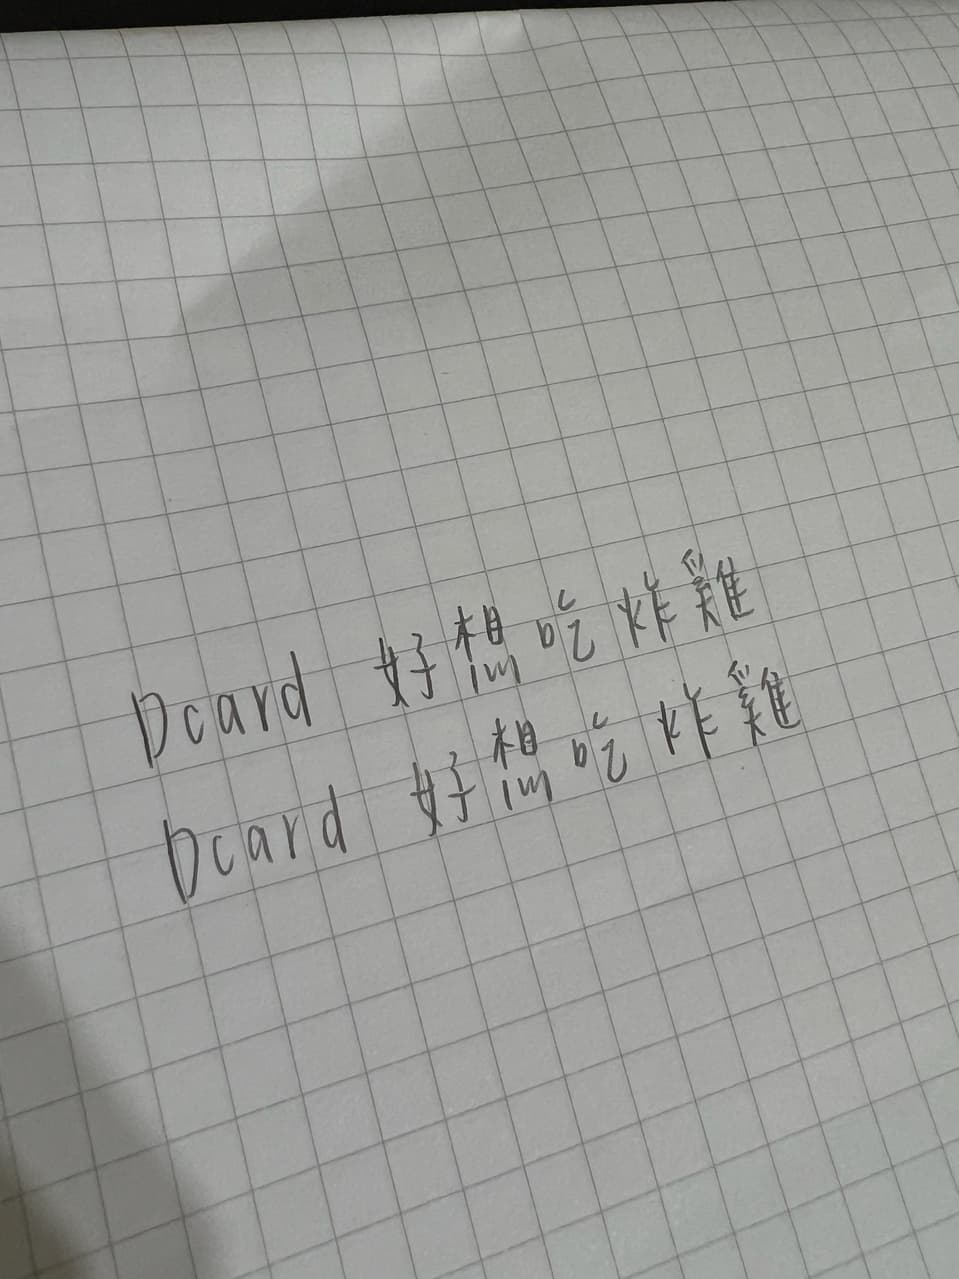 Dcard 好想吃炸雞
Dcard 好想吃炸雞